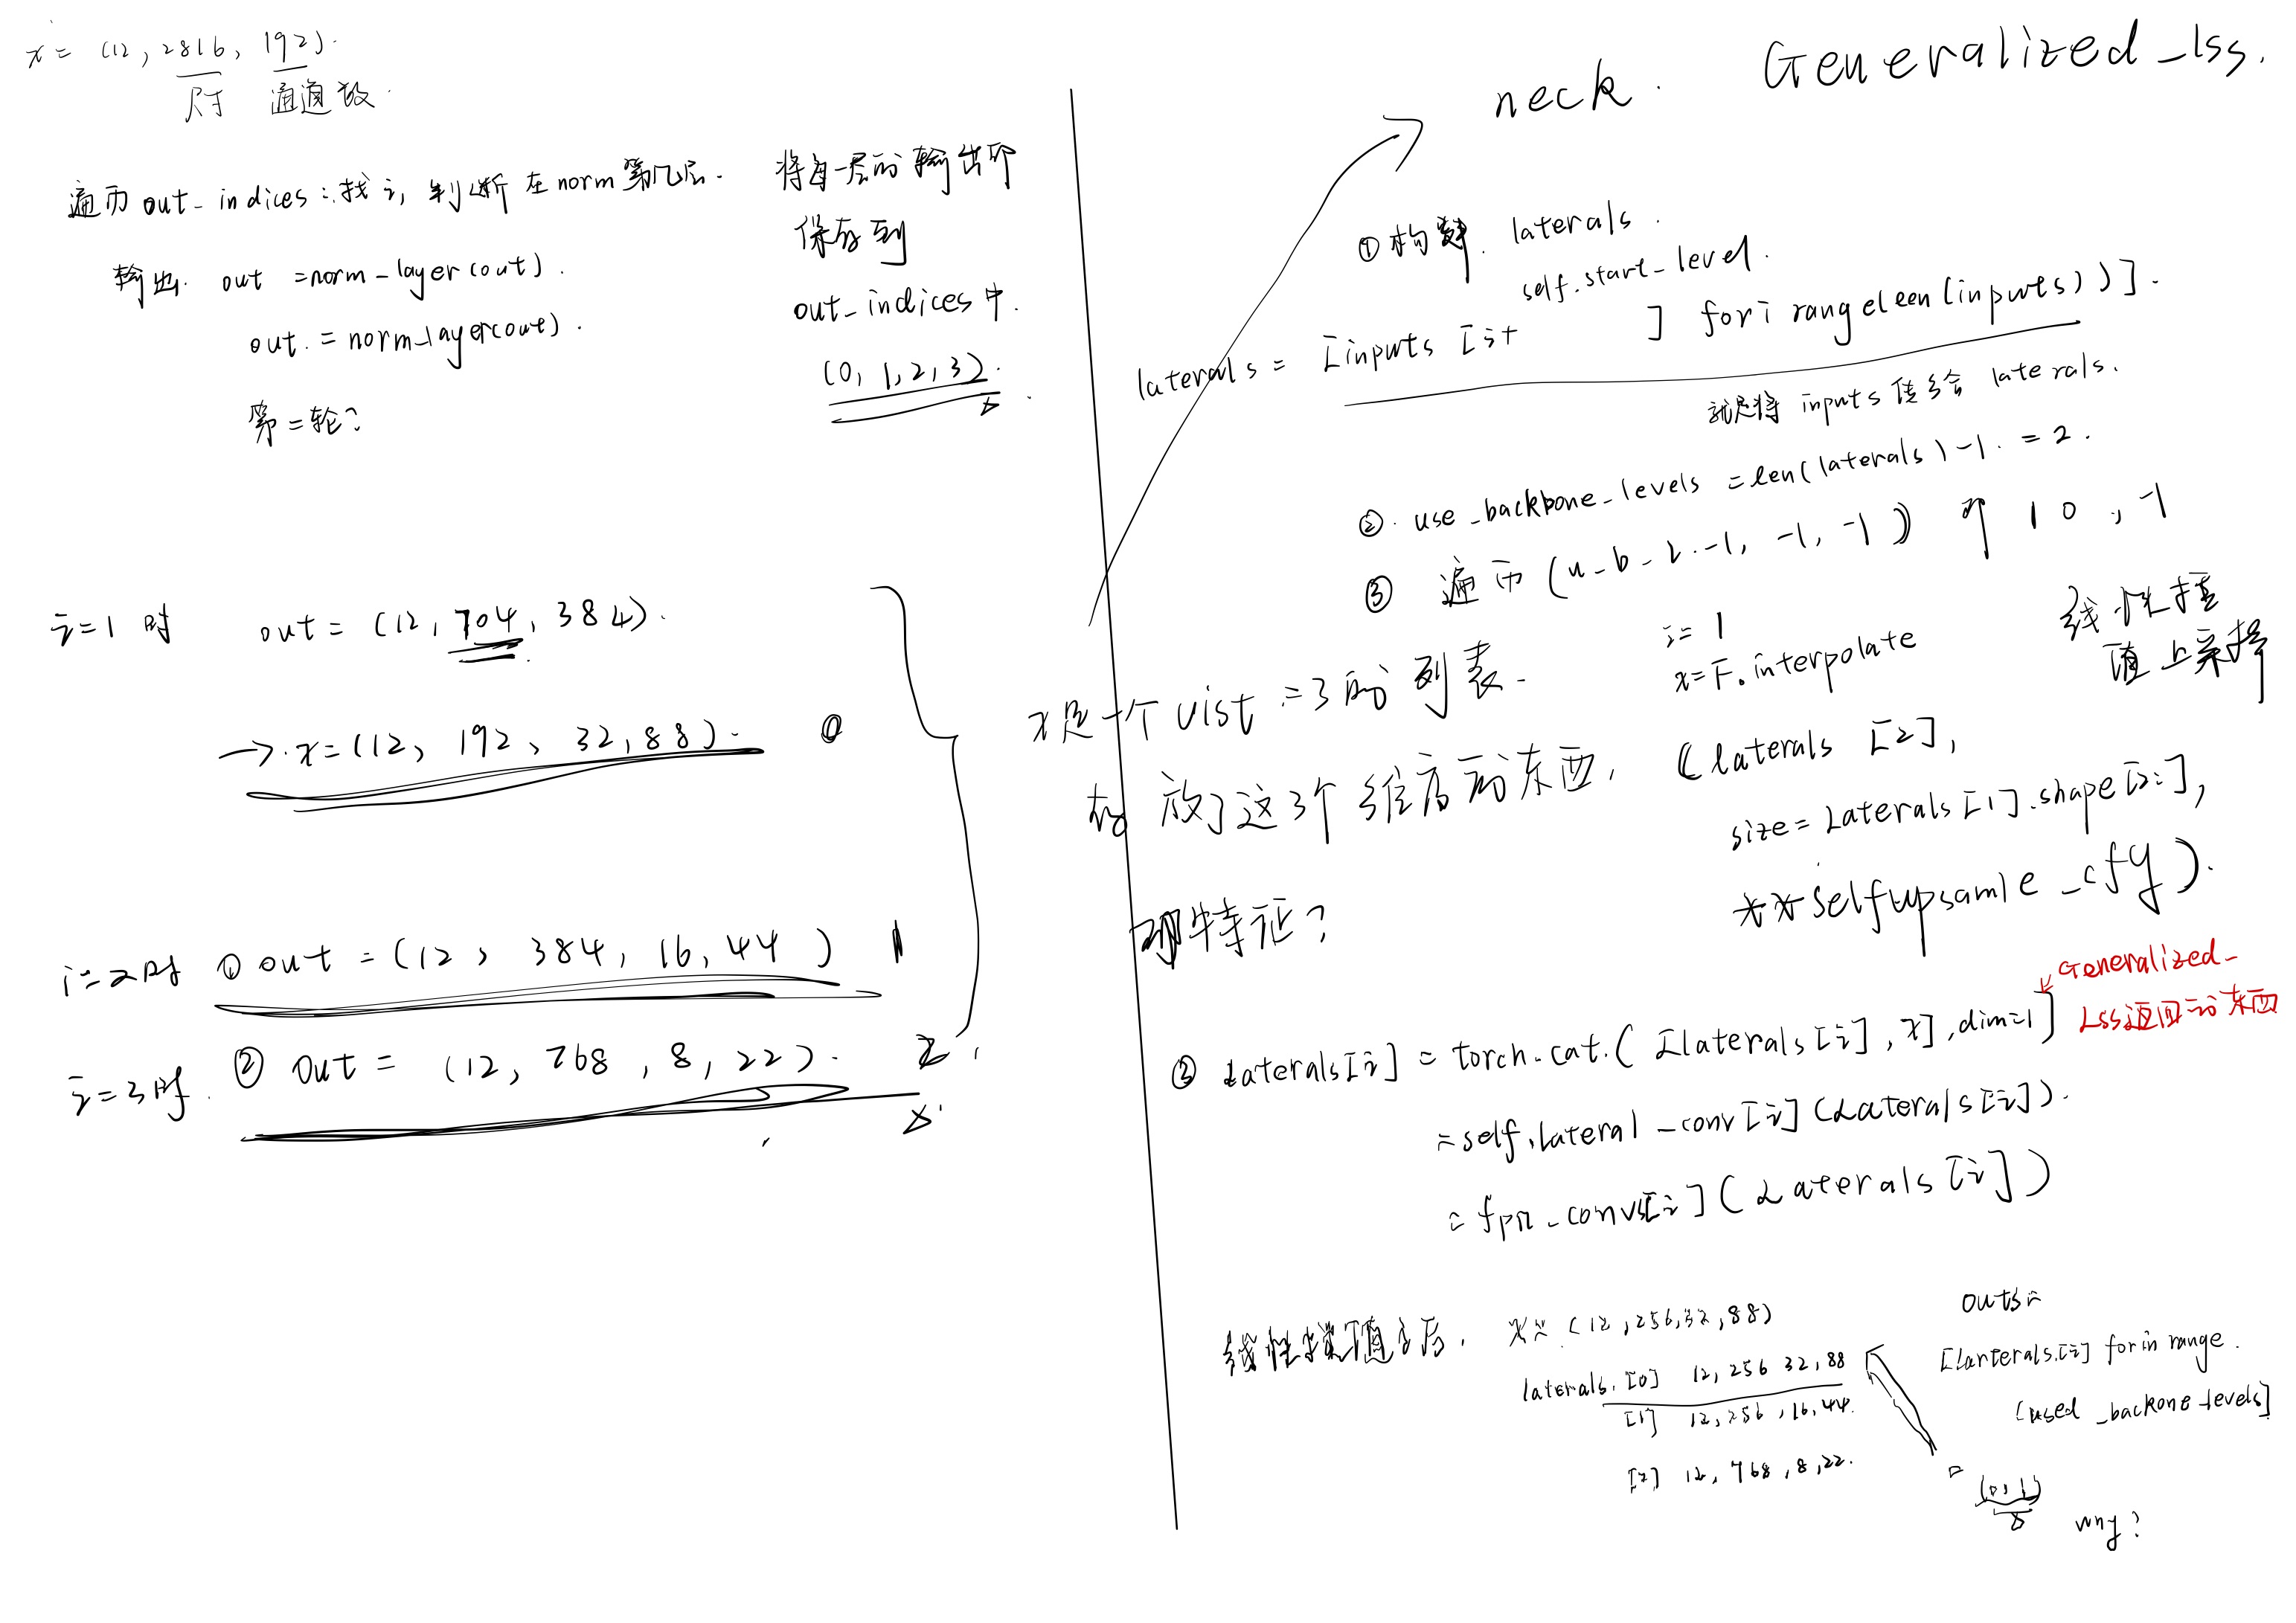 x = (12, 2816, 192).
尺寸 通道数.
遍历 out_indices: 找 i, 判断 在 norm 第几层.
输出. out = norm_layer(out).
out. = norm_layer(out).
第二轮?
将每一层的输出
保存到
out_indices 中.
(0, 1, 2, 3).
i=1 时 out = (12, 704, 384).
→ x=(12, 192, 32, 88). 0
i=2时 ① out = (12, 384, 16, 44) 1
i=3时. ② out = (12, 768, 8, 22). 2.
neck. Generalized_lss.
① 构建. laterals.
self.start_level.
laterals = [inputs [i+ ] for i range(len(inputs))].
就是将 inputs 传给 laterals.
②. use_backbone_levels = len(laterals)-1. = 2.
③ 遍历 (u_b_l.-1, -1, -1) 1 0, -1
i= 1
x=F.interpolate
线性插
值上采样
(laterals [2],
size= Laterals [1].shape[2:],
**self upsamle_cfg).
x是一个 list =3 的 列表.
放了这3个维度的东西,
特征?
② Laterals[i] = torch.cat.([laterals[i], x], dim=1]
Generalized_
Lss返回的东西
=self.lateral_conv[i](Laterals[i]).
= fpn_convs[i](Laterals[i])
线性插值之后. x= (12,256,32,88)
laterals. [0] 12, 256 32, 88
[1] 12, 256, 16, 44.
[2] 12, 768, 8, 22.
outs=
[larterals.[i] for in range.
(used_backone_levels]
= (0, 1)
why?